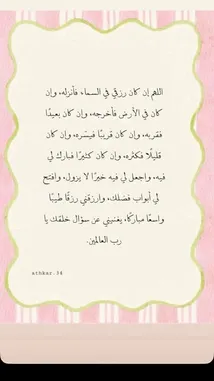 اللهم إن كان رزقي في السماء فأنزله، وإن
كان في الأرض فأخرجه، وإن كان بعيدًا
فقربه، وإن كان قريبًا فيسّره، وإن كان
قليلًا فكثره، وإن كان كثيرًا فبارك لي
فيه، واجعل لي فيه خيرًا لا يزول، وافتح
لي أبواب فضلك، وارزقني رزقًا طيبًا
واسعًا مباركًا، يغنيني عن سؤال خلقك يا
رب العالمين.
athkar.34